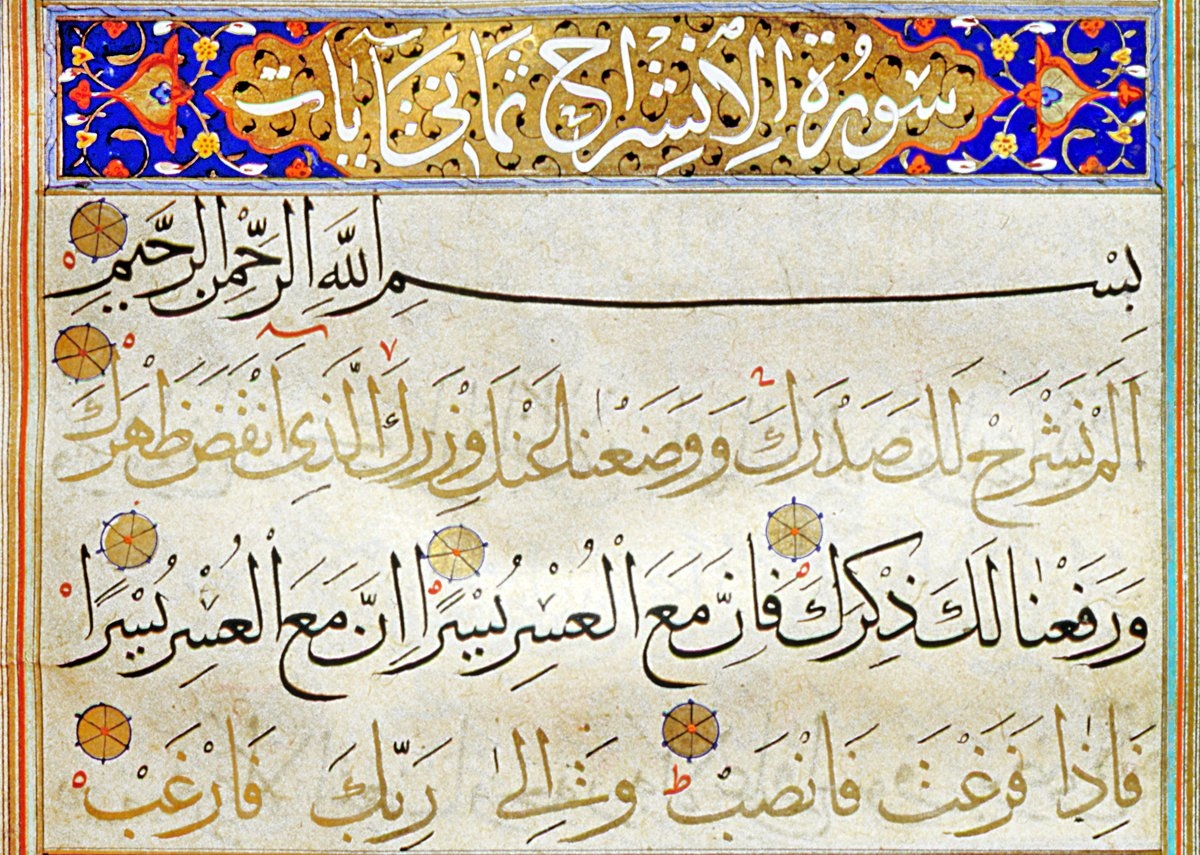 سورة الانشراح ثمانی آیات
بسم الله الرحمن الرحیم
الم نشرح لك صدرك ووضعنا عنك وزرك الذی انقض ظهرك
ورفعنا لك ذكرك فان مع العسر یسرا ان مع العسر یسرا
فاذا فرغت فانصب والی ربك فارغب